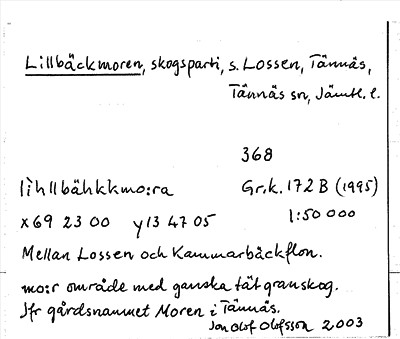 Lillbäckmoren, skogsparti, s. Lossen, Tännäs,
Tännäs sn, Jämtl. l.
368
lìhllbähkkmo:ra Gr.k. 172 B (1995)
x 69 23 00 y 13 47 05 1:50 000
Mellan Lossen och Kammarbäckflon.
mo:r område med ganska tät granskog.
Jfr gårdsnamnet Moren i Tännäs.
Jan Olof Olofsson 2003